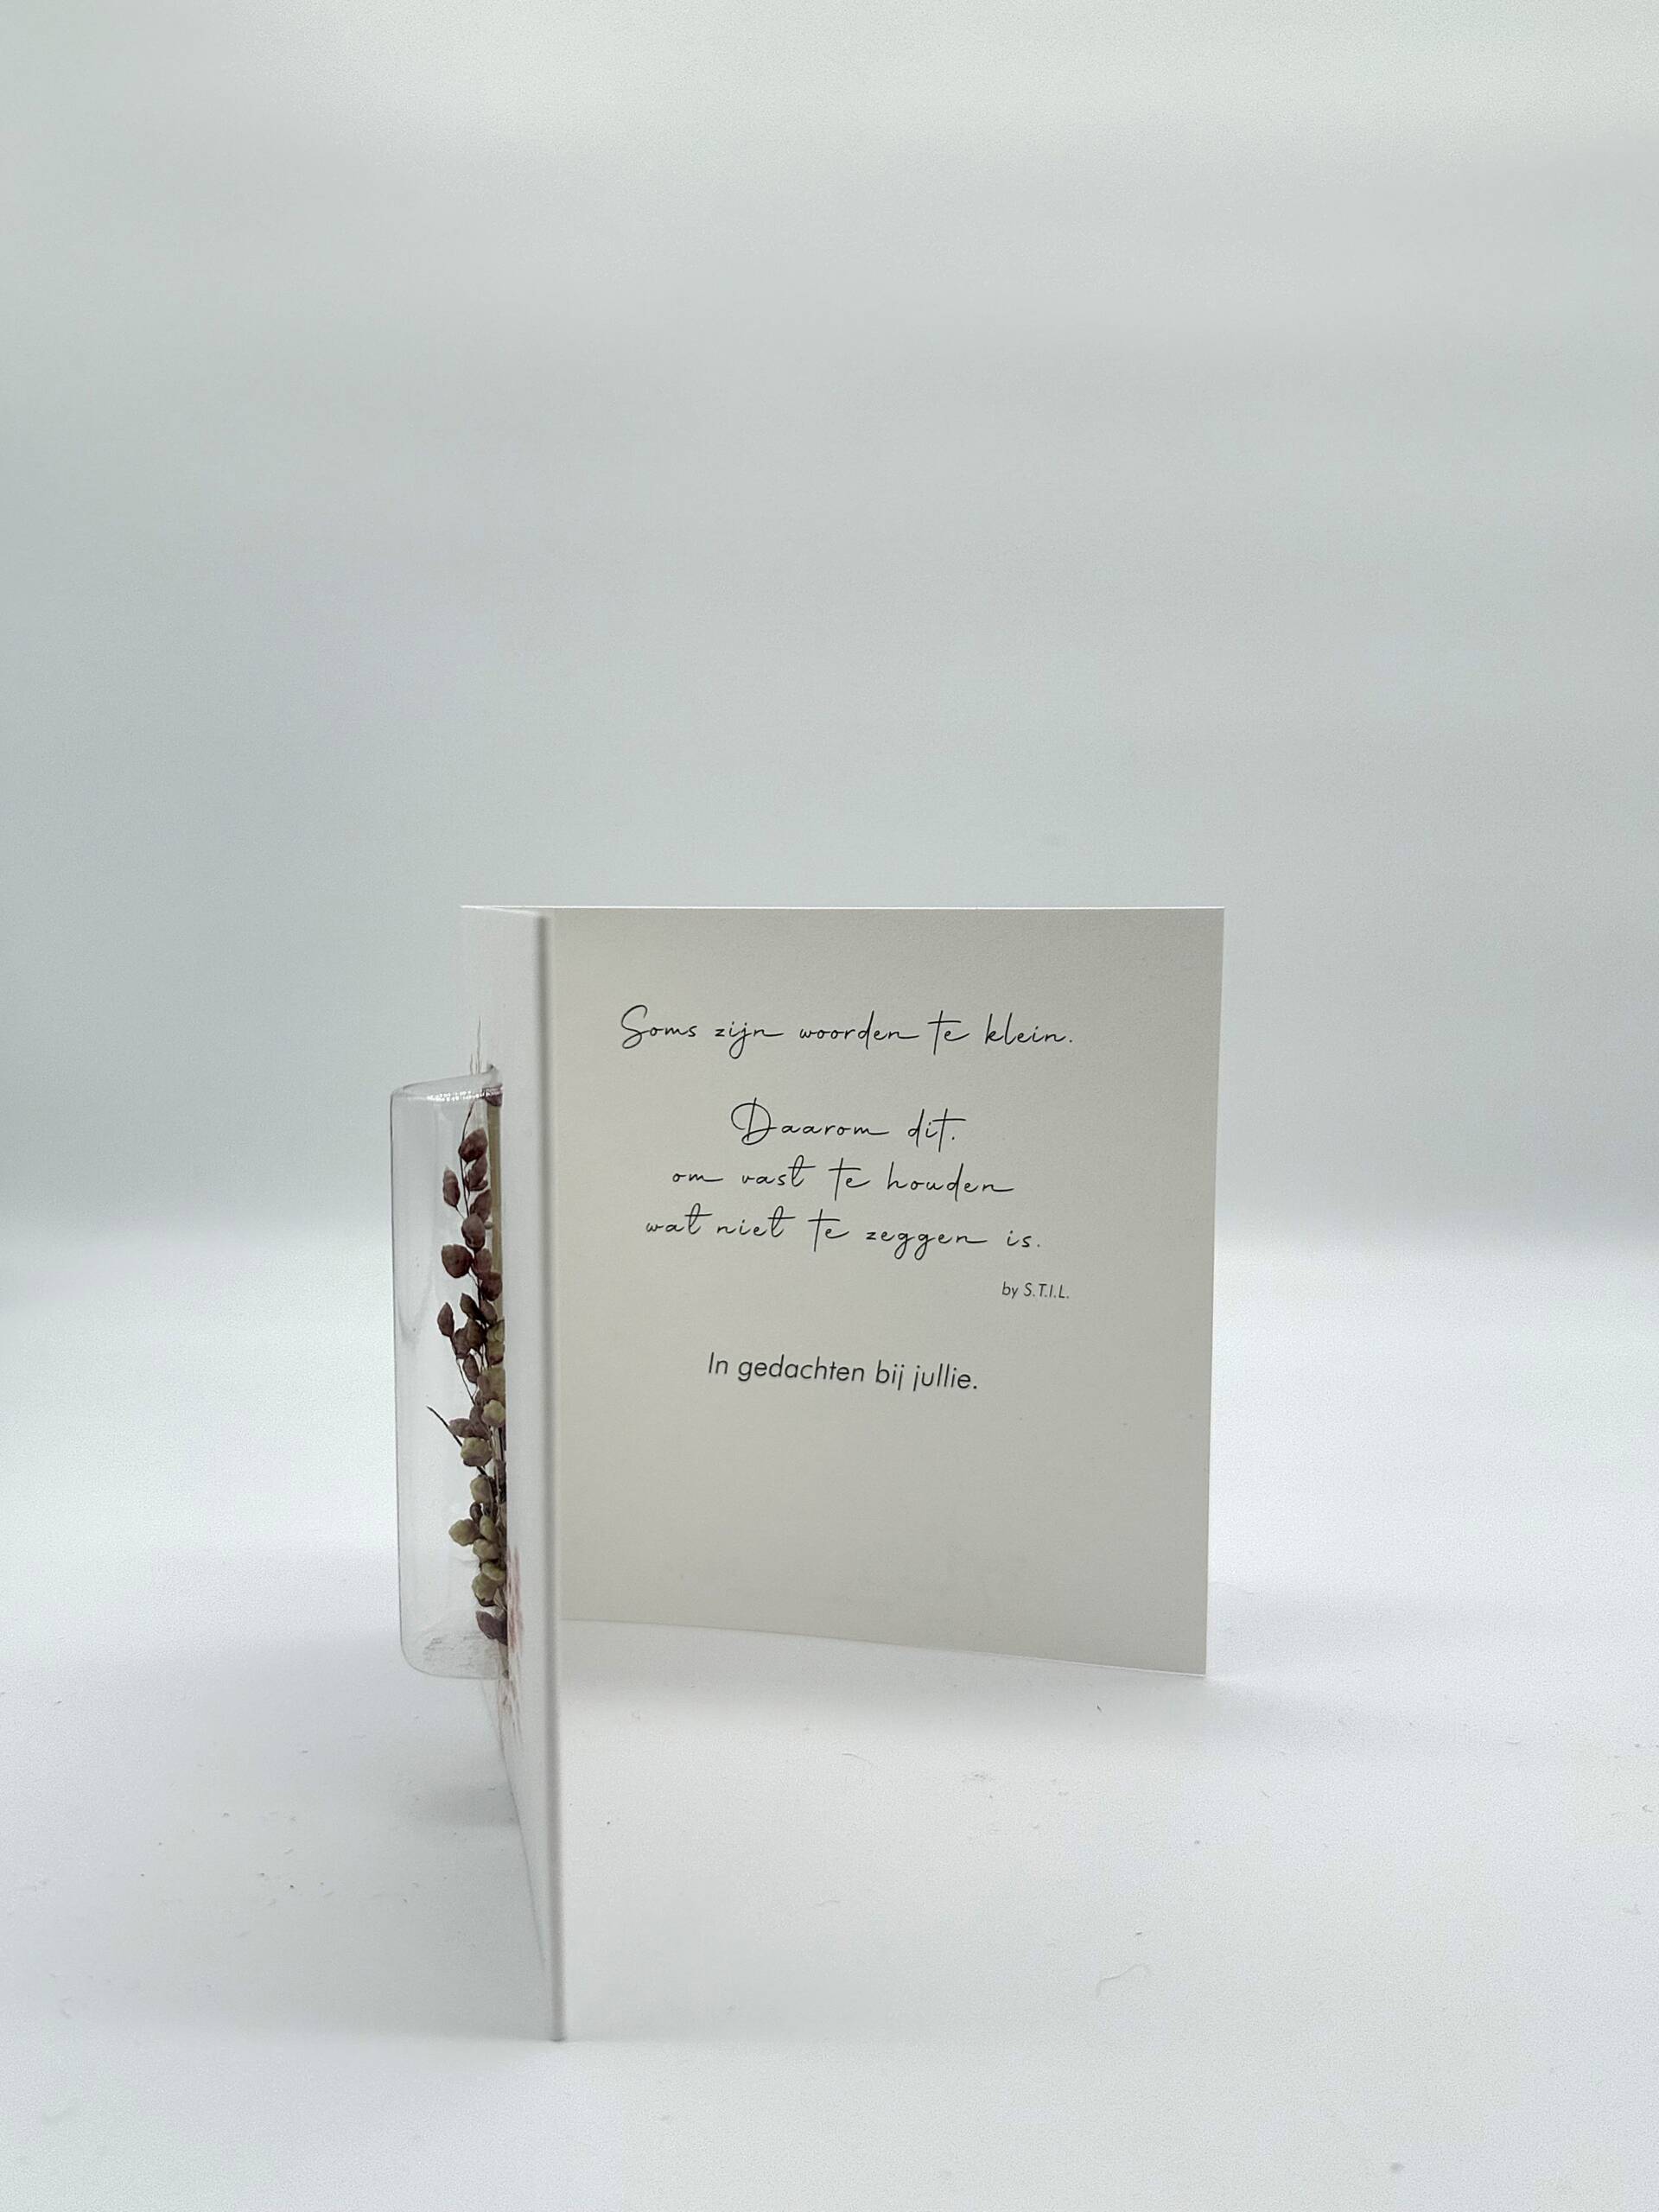 Soms zijn woorden te klein.
Daarom dit.
om vast te houden
wat niet te zeggen is.
by S.T.I.L.
In gedachten bij jullie.